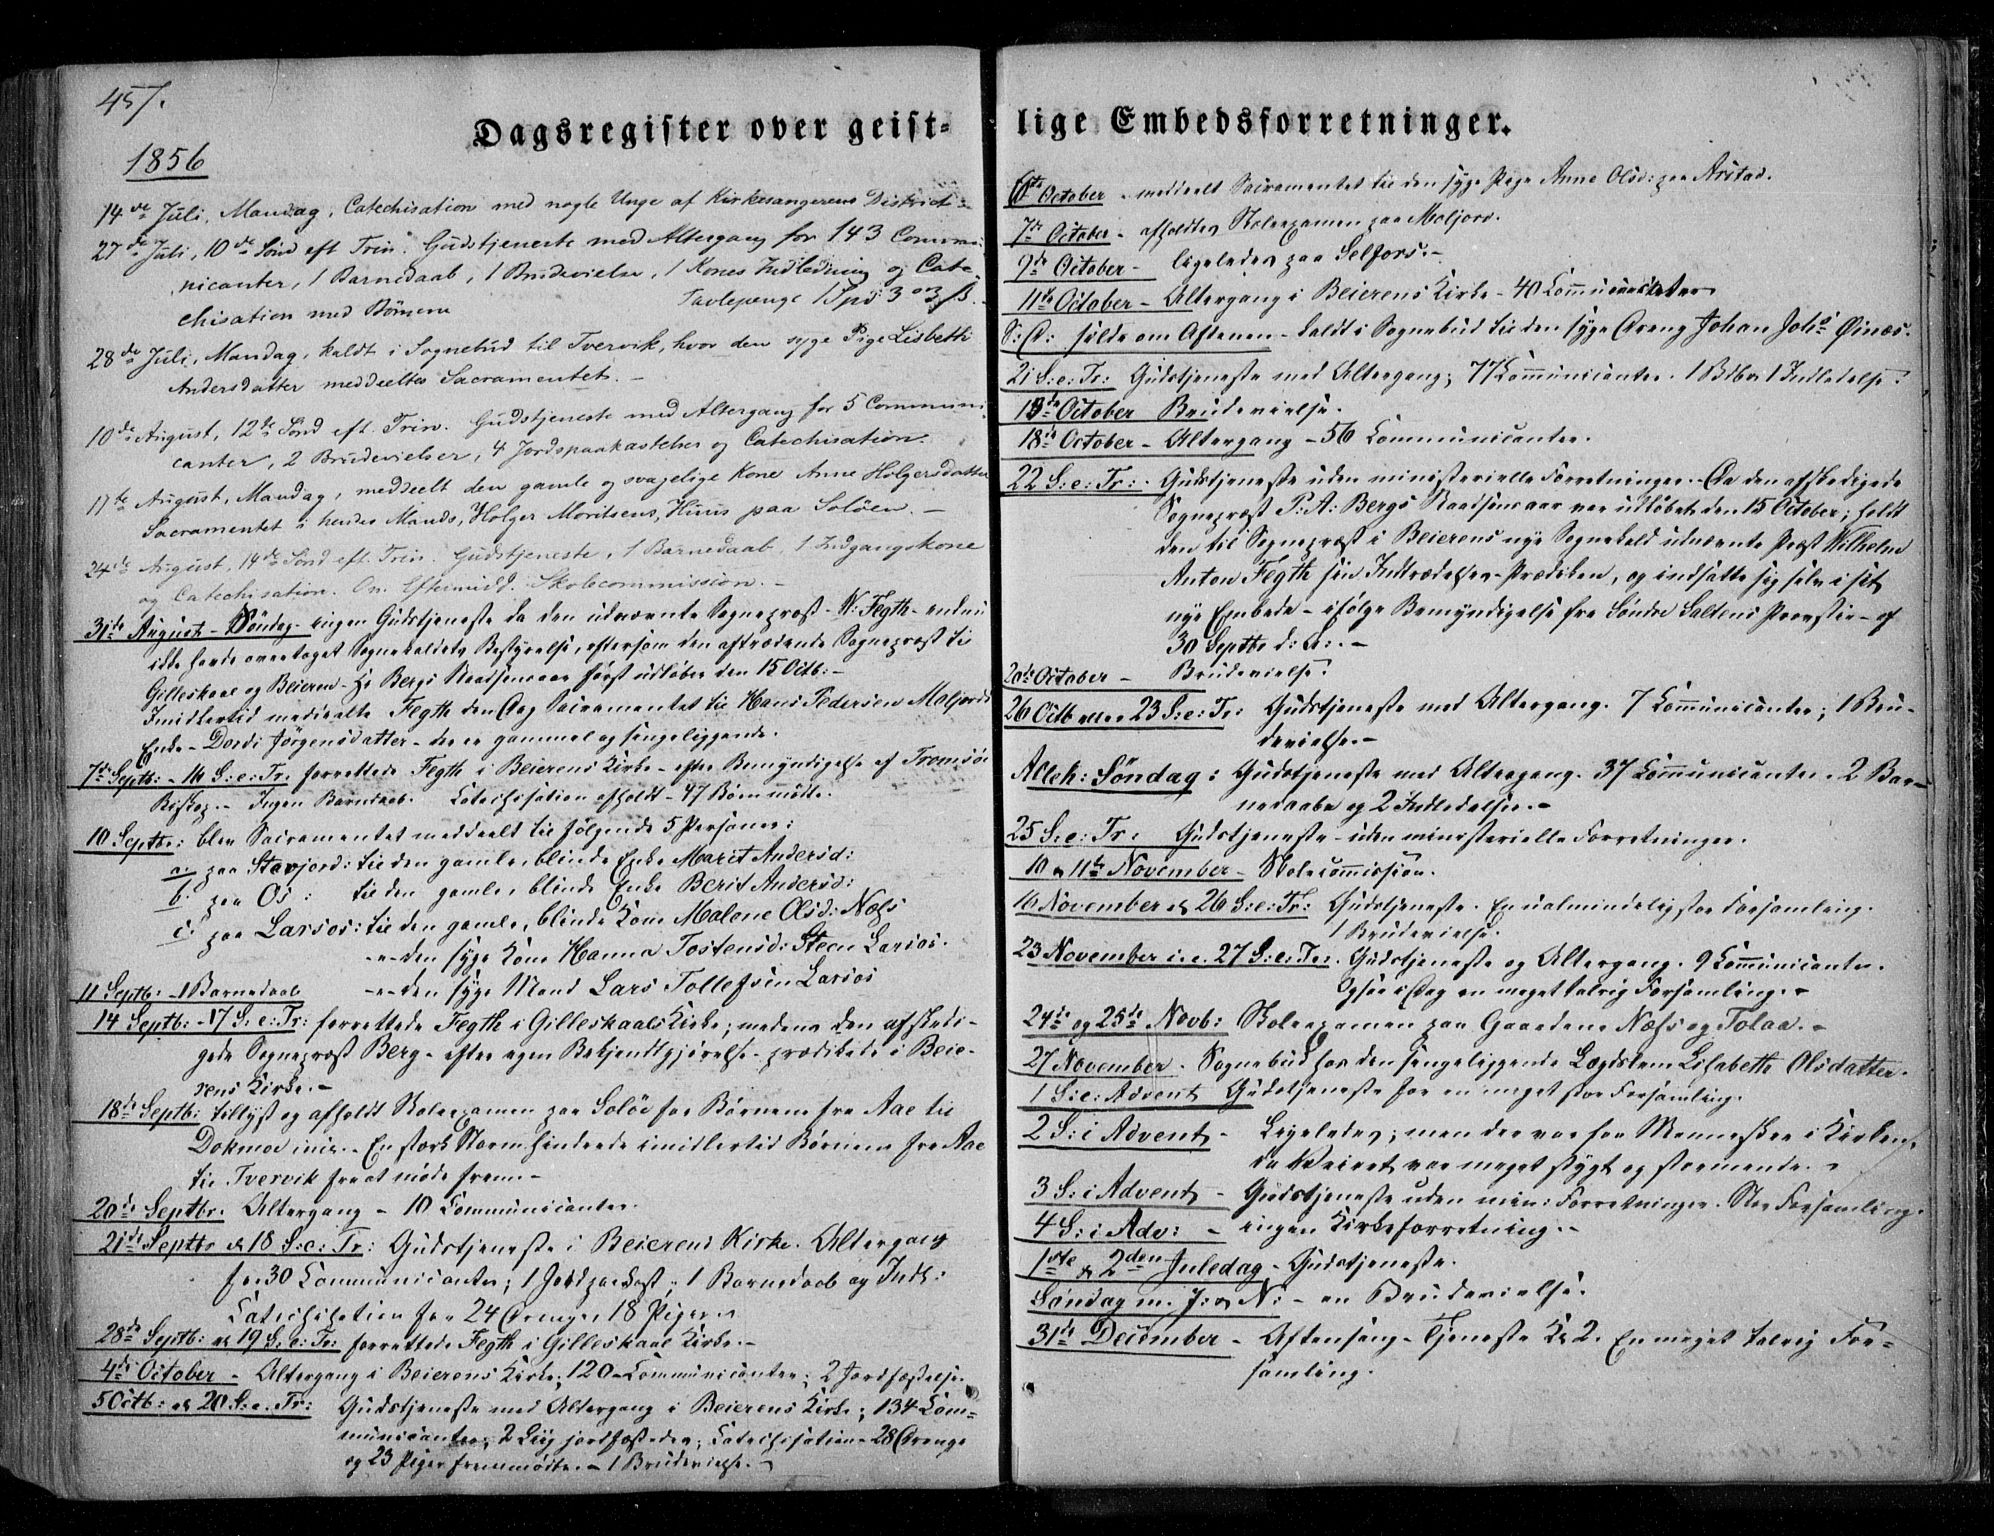 457.
Dagsregister over geist-
1856
14de Juli, Mandag, Catechisation med nogle Unge af Kirkesangerens District.
27de Juli, 10de Sönd eft Trin. Gudstjeneste med Altergang for 143 Commu-
nicanter, 1 Barnedaab, 1 Brudevielse, 1 Kones Indledning og Cate-
chisation med Börnene Tavlepenge 1 Spd 3 ort ß.
28de Juli, Mandag, kaldt i Sognebud til Tvervik, hvor den syge Pige Lisbeth
Andersdatter meddeeltes Sacramentet. -
10de August, 12te Sönd eft. Trin. Gudstjeneste med Altergang for 5 Communi-
canter, 2 Brudevielser, 4 Jordspaakastelser og Catechisation.
11te August, Mandag, meddeelt den gamle og svagelige Kone Anne Holgersdatter
Sacramentet i hendes Mands, Holger Moritsens, Huus paa Solöen. -
24de August, 14de Sönd eft. Trin. Gudstjeneste, 1 Barnedaab, 1 Indgangskone
og Catechisation. Om Eftermidd. Skolecommission. -
31de August - Söndag - ingen Gudstjeneste da den udnævnte Sognepræst - W. Fegth - endnu
ikke havde overtaget Sognekaldets Bestyrelse, eftersom den aftrædende Sognepræst til
Gilleskaal og Beieren - Hr Bergs Naadsensaar först udlöber den 15 Octb: -
Imidlertid meddeelte Fegth den Dag Sacramentet til Hans Pedersens Moljords
Enke - Dordi Jörgensdatter - der er gammel og sengeliggende.
7de Septb: - 16 S: e: Tr: forrettede Fegth i Beierens Kirke - efter Bemyndigelse af Tromsöe
Biskop. - Ingen Barnedaab. Catechisation afholdt - 47 Börn mödte.
10 Septbr: blev Sacramentet meddeelt til fölgende 5 Personer:
a. paa Stavjord: til den gamle, blinde Enke Marit Andersd:
b. paa Os: til den gamle, blinde Enke Berit Andersd:
c. paa Larsos: til den gamle, blinde Kone Malene Olsd: Næss
-"- den syge Kone Hanna Tostensd: Steen Larsos.
-"- den syge Mand Lars Tollefsen Larsos
11 Septb: - 1 Barnedaab
14 Septb: - 17 S: e: Tr: forrettede Fegth i Gilleskaals Kirke; medens den afskedi-
gede Sognepræst Berg - efter egen Bekjendtgjörelse - prædikede i Beie-
rens Kirke. -
18de Septb: tillyst og afholdt Skoleexamen paa Solöe for Börnene fra Aae til
Dokmoe incl. - En stærk Storm hindrede imidlertid Börnene fra Aae
til Tvervik fra at möde frem. -
20de Septbr. Altergang - 10 Communicanter.
21de Septbr el 18 S: e: Tr: Gudstjeneste i Beierens Kirke. Altergang
for 30 Communicanter; 1 Jordpaakast, 1 Barnedaab og Indl:
Catechisation for 24 Drenge, 18 Piger.
28de Septb: el 19 S: e: Tr: forrettede Fegth i Gilleskaal Kirke. -
4de October - Altergang i Beierens Kirke; 120 - Communicanter; 2 Jordfæstelser.
5 Octb: el 20 S: e. Tr: Gudstjeneste med Altergang i Beierens Kirke; 134 Com-
municanter; 2 Liig jordfæstedes; Catechisation - 28 Drenge
og 23 Piger fremmödte. - 1 Brudevielse. -
lige Embedsforretninger.
6te October - meddeelt Sacramentet til den syge Pige Anne Olsd: paa Arstad.
7de October - afholdtes Skoleexamen paa Moljord.
9de October - ligeledes paa Selfors. -
11te October - Altergang i Beierens Kirke - 40 Communicanter
S: D: silde om Aftenen - kaldt i Sognebud til den syge Dreng Johan Johs Öines.
21 S: e: Tr: Gudstjeneste med Altergang; 77 Communicanter. 1 Bdb 1 Indledelse.
13de October Brudevielse.
18de October - Altergang - 56 Communicanter.
22 S: e: Tr: Gudstjeneste uden ministerielle Forretninger. - Da den afskedigede
Sognepræst P: A: Bergs Naadsensaar var udlöbet den 15 October; holdt
den til Sognepræst i Beierens nye Sognekald udnævnte Præst Wilhelm
Anton Fegth sin Indtrædelses-Prædiken, og indsatte sig selv i sit
nye Embede - ifölge Bemyndigelse fra Söndre Saltens Provstie - af
30 Septbr d: A: -
20de October - Brudevielse.
26 Octb eller 23 S: e: Tr: Gudstjeneste med Altergang. 7 Communicanter; 1 Bru-
devielse. -
Alleh: Söndag: Gudstjeneste med Altergang. 37 Communicanter. 2 Bar-
nedaabe og 2 Indledelser. -
25 S: e: Tr: Gudstjeneste - uden ministerielle Forretninger.
10 & 11te November - Skolecommission.
16 November el 26 S: e: Tr: Gudstjeneste. En ualmindelig stor Forsamling.
1 Brudevielse.
23 November i. e. 27 S: e: Tr: Gudstjeneste og Altergang. 9 Communicanter.
Ogsaa i Dag en meget talrig Forsamling. -
24de og 25de Novb: Skoleexamen paa Gaardene Næss og Tolaa. -
27 November - Sognebud hos den sengeliggende Lægdslem Lisabeth Olsdatter.
1 S: e: Advent Gudstjeneste for en meget stor Forsamling.
2 S: i Advent - Ligeledes; men der var faa Mennesker i Kirken,
da Veiret var meget stygt og stormende. -
3 S: i Advent - Gudstjeneste uden min: Forretninger. Stor Forsamling.
4 S: i Adv: - ingen Kirkeforretning. -
1ste & 2den Juledag - Gudstjeneste.
Söndag m. J: & N: - en Brudevielse.
31te December - Aftensang - Tjeneste Kl 2. En meget talrig For-
samling.